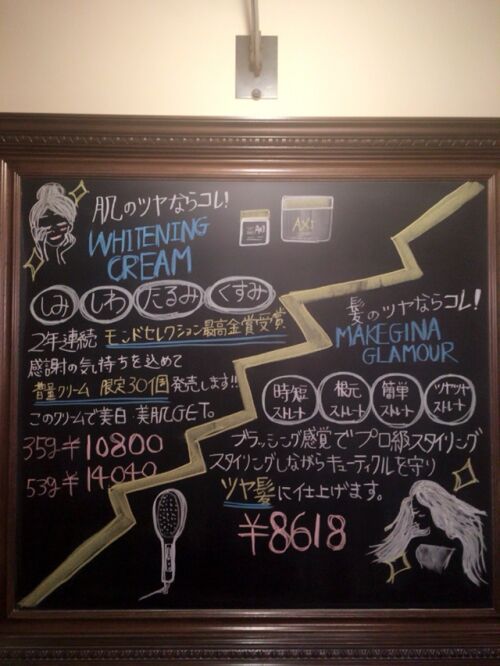 肌のツヤならコレ!
WHITENING
CREAM
しみ しわ たるみ くすみ
2年連続 モンドセレクション最高金賞受賞
感謝の気持ちを込めて
増量クリーム 限定301個発売します!!
このクリームで美白 美肌にGET。
35g ¥10800
53g ¥14040
Ax1
Ax1
髪のツヤならコレ!
MAKEGINA
GLAMOUR
時短ストレート 根元ストレート 簡単ストレート ツヤツヤストレート
ブラッシング感覚でプロ級スタイリング
スタイリングしながらキューティクルを守り
ツヤ髪に仕上げます。
¥8618